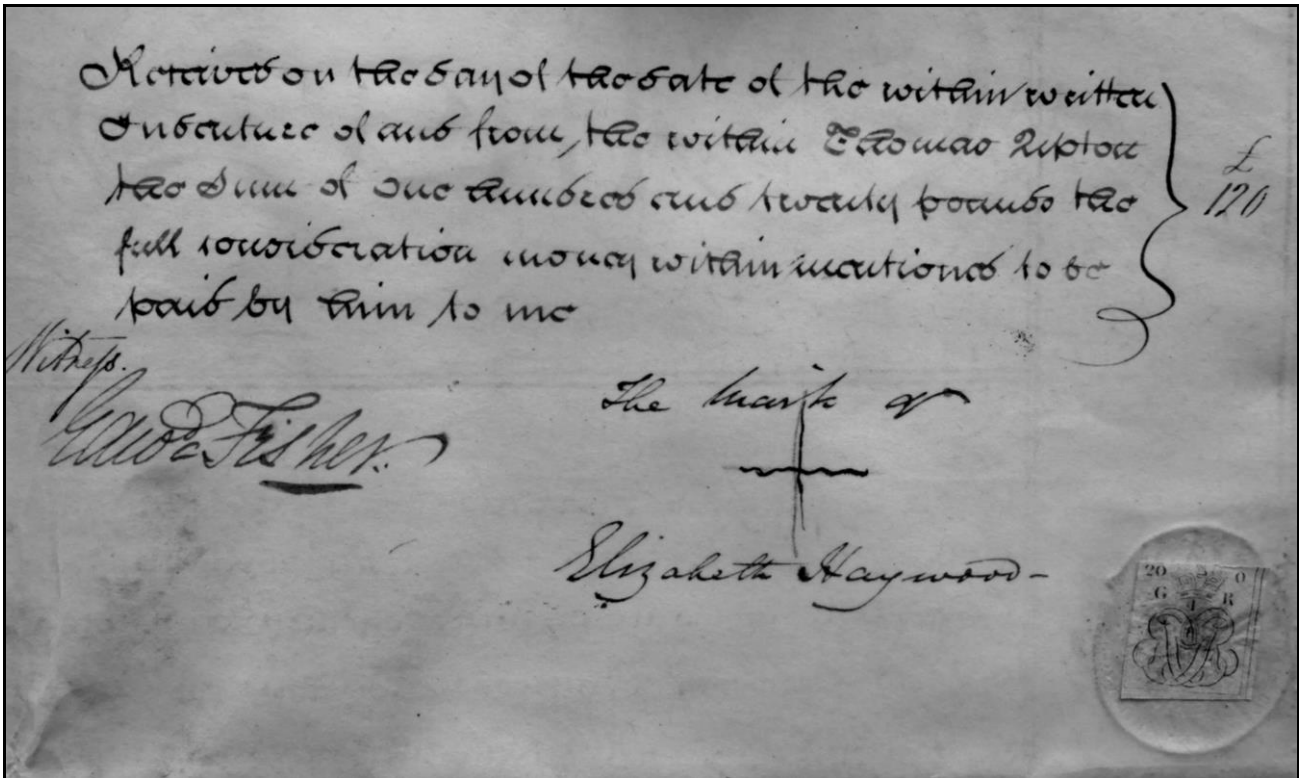 Received on the day of the date of the within written
Indenture of and from the within Thomas Lipton
the Sum of One hundred and twenty pounds the
full consideration money within mentioned to be
paid by him to me
£
120
Witness.
Edwd Fisher.
The Mark of
Elizabeth Haywood
20 0
G R